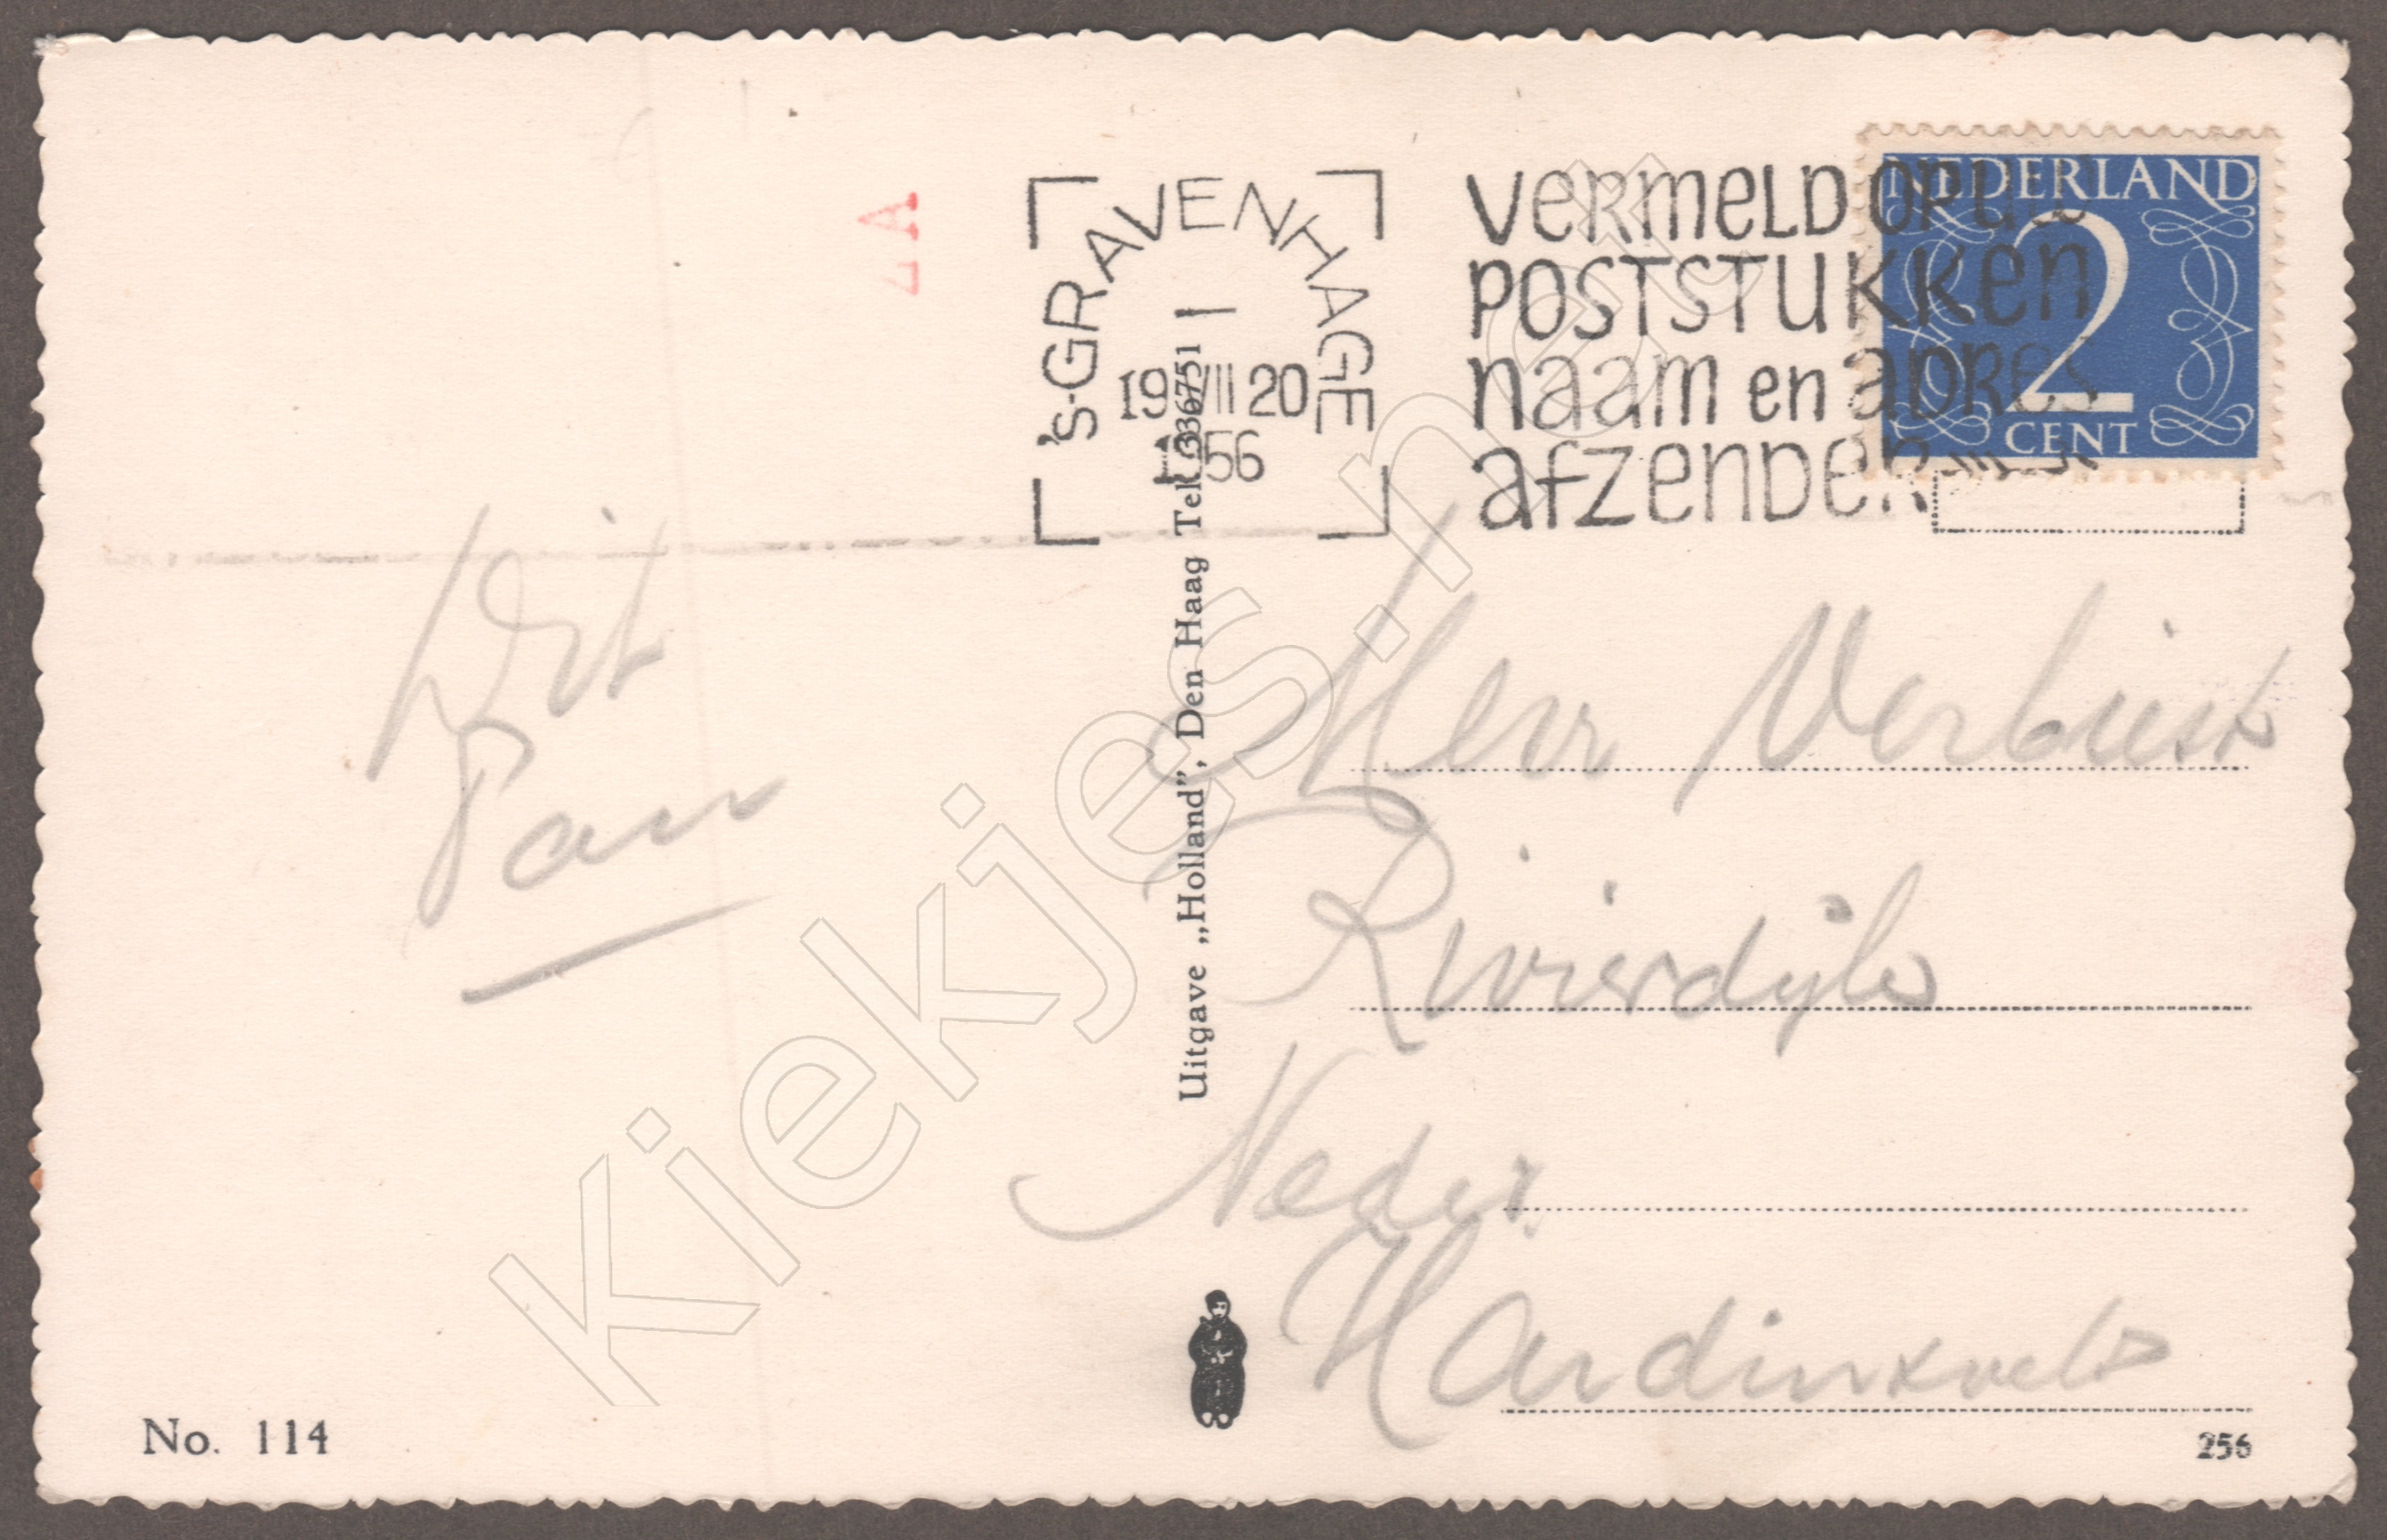 's-GRAVENHAGE
19 VIII 20
1956
VERMELD OP UW
POSTSTUKKEN
naam en ADRES
afzender
NEDERLAND
2
CENT
Uitgave „Holland”, Den Haag Tel. 336751
Piet
Pam
Heer Verbiest
Rivierdijk
Neder
Hardinxveld
No. 114
256
Kiekjes.net